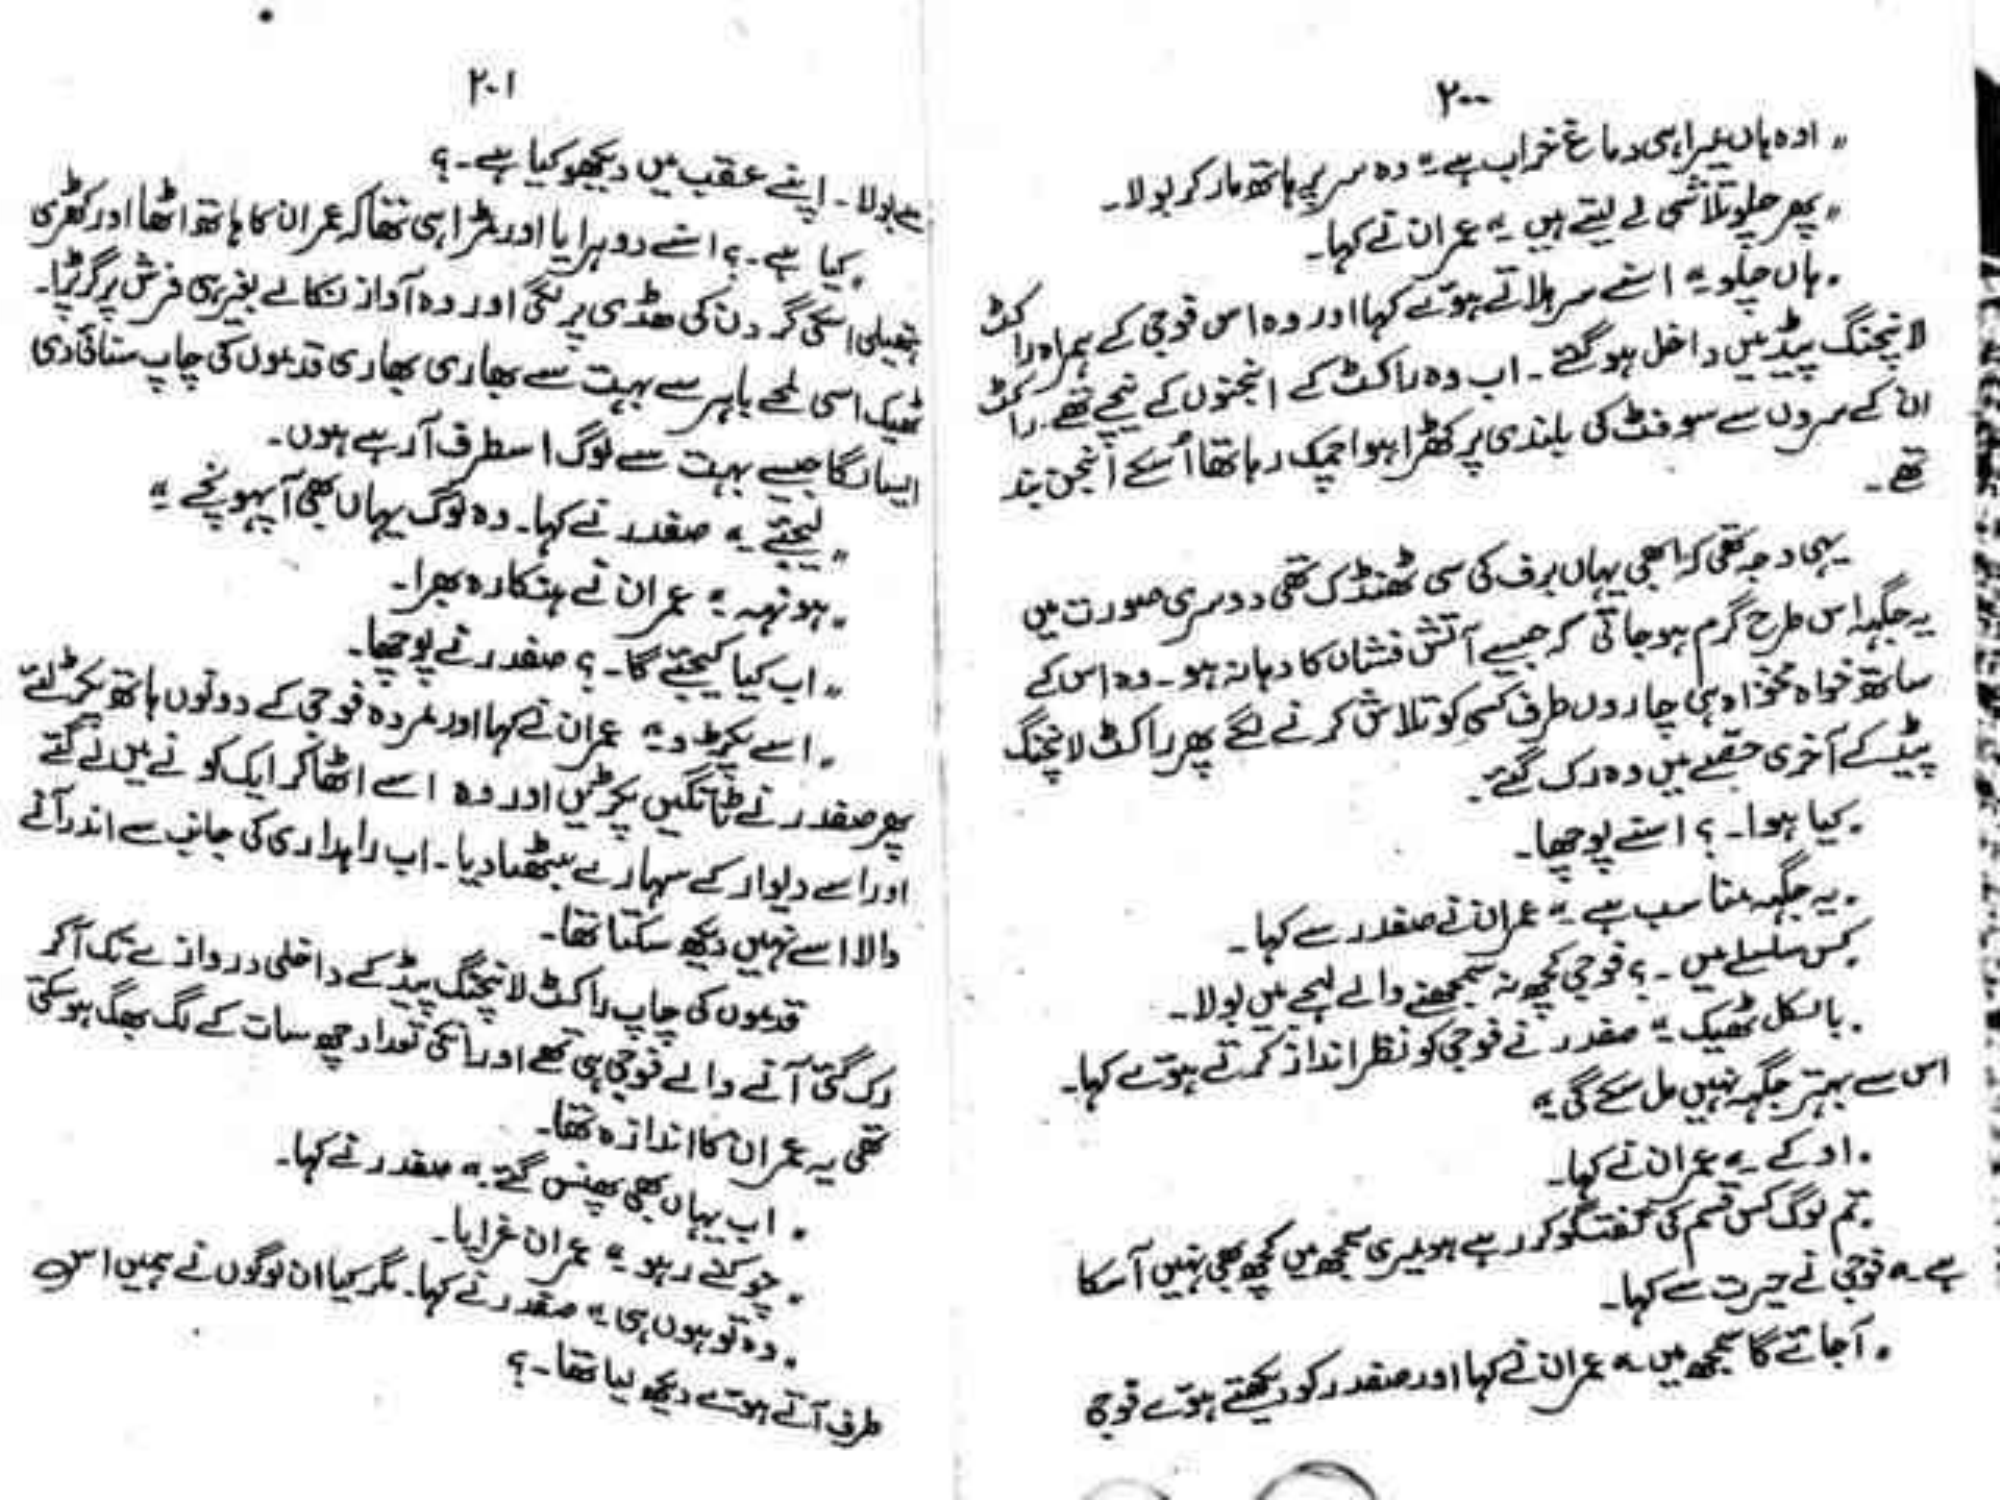 ۲۰۰
"اوہ ہاں میرا ہی دماغ خراب ہے۔" وہ سر پر ہاتھ مار کر بولا۔
"پھر چلو تلاشی لے لیتے ہیں۔" عمران نے کہا۔
"ہاں چلو۔" اسنے سر ہلاتے ہوئے کہا اور وہ اس فوجی کے ہمراہ راکٹ
لانچنگ پیڈ میں داخل ہو گئے۔ اب وہ راکٹ کے انجنوں کے نیچے تھے۔ راکٹ
ان کے سروں سے سو فٹ کی بلندی پر کھڑا ہوا چمک رہا تھا اُسکے انجن بند
تھے۔
یہی وجہ تھی کہ ابھی یہاں برف کی سی ٹھنڈک تھی دوسری صورت میں
یہ جگہ اس طرح گرم ہو جاتی کہ جیسے آتش فشاں کا دہانہ ہو۔ وہ اس کے
ساتھ خواہ مخواہ ہی چاروں طرف کسی کو تلاش کرنے لگے پھر راکٹ لانچنگ
پیڈ کے آخری حصے میں وہ رک گئے۔
"کیا ہوا۔؟ اسنے پوچھا۔
"یہ جگہ مناسب ہے۔" عمران نے صفدر سے کہا۔
"کس سلسلے میں۔؟ فوجی کچھ نہ سمجھنے والے لہجے میں بولا۔
"بالکل ٹھیک۔" صفدر نے فوجی کو نظر انداز کرتے ہوئے کہا۔
اس سے بہتر جگہ نہیں مل سکے گی۔"
"اوکے۔" عمران نے کہا۔
"تم لوگ کس قسم کی گفتگو کر رہے ہو میری سمجھ میں کچھ بھی نہیں آ سکا
ہے۔" فوجی نے حیرت سے کہا۔
"آ جائے گا سمجھ میں۔" عمران نے کہا اور صفدر کو دیکھتے ہوئے فوجی
۲۰۱
سے بولا۔ اپنے عقب میں دیکھو کیا ہے۔؟
"کیا ہے۔؟ اسنے دوہرایا اور مڑا ہی تھا کہ عمران کا ہاتھ اٹھا اور کھڑی
ہتھیلی اسکی گردن کی ہڈی پر لگی اور وہ آواز نکالے بغیر ہی فرش پر گر پڑا۔
ٹھیک اسی لمحے باہر سے بہت سے بھاری بھاری قدموں کی چاپ سنائی دی
ایسا لگا جیسے بہت سے لوگ اسطرف آ رہے ہوں۔
"لیجئے۔" صفدر نے کہا۔ وہ لوگ یہاں بھی آ پہونچے۔"
"ہونہہ۔" عمران نے ہنکارہ بھرا۔
"اب کیا کیجئے گا۔؟ صفدر نے پوچھا۔
"اسے پکڑ و۔" عمران نے کہا اور مردہ فوجی کے دونوں ہاتھ پکڑ لئے
پھر صفدر نے ٹانگیں پکڑیں اور وہ اسے اٹھا کر ایک کونے میں لے گئے
اور اسے دیوار کے سہارے بیٹھا دیا۔ اب راہداری کی جانب سے اندر آنے
والا اسے نہیں دیکھ سکتا تھا۔
قدموں کی چاپ راکٹ لانچنگ پیڈ کے داخلی دروازے تک آ کر
رک گئی آنے والے فوجی ہی تھے اور انکی تعداد چھ سات کے لگ بھگ ہو سکتی
تھی یہ عمران کا اندازہ تھا۔
"اب یہاں بھی پھنس گئے۔" صفدر نے کہا۔
"چوکنے رہو۔" عمران غرایا۔
"وہ تو ہوں ہی۔" صفدر نے کہا۔ مگر کیا ان لوگوں نے ہمیں اس
طرف آتے ہوئے دیکھ لیا تھا۔؟